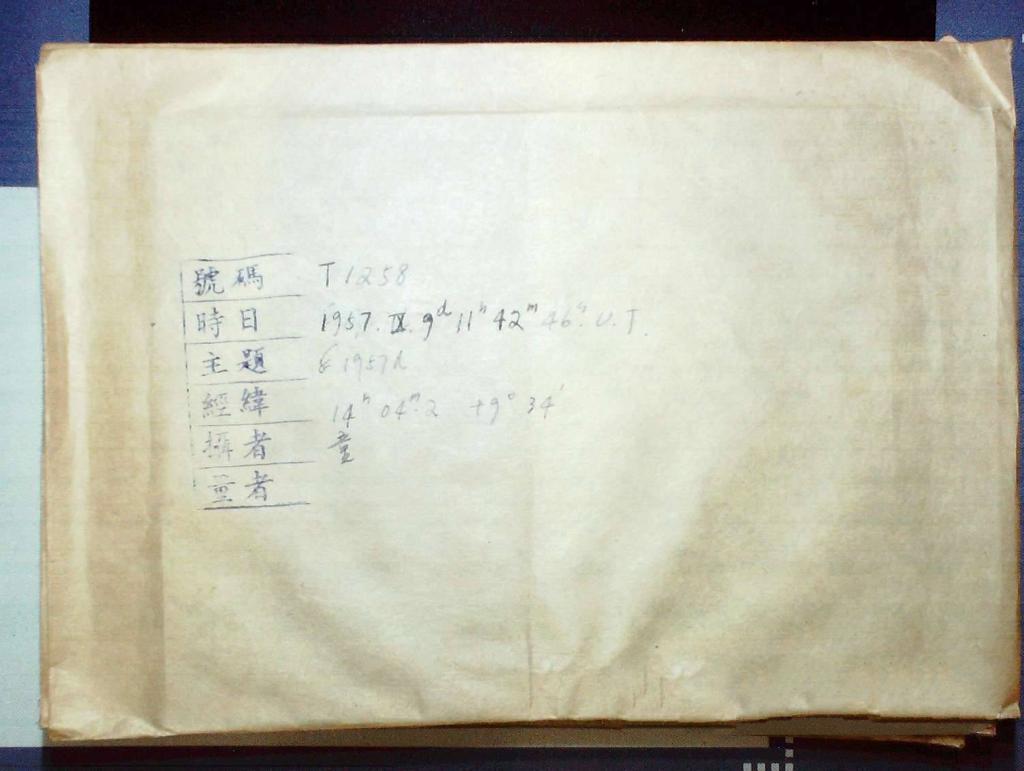 號碼 T 1258
時日 1957. IX. 9ᵈ 11ʰ 42ᵐ 46ˢ. U.T.
主題 1957d
經緯 14ʰ 04ᵐ.2 +9° 34'
攝者 童
量者